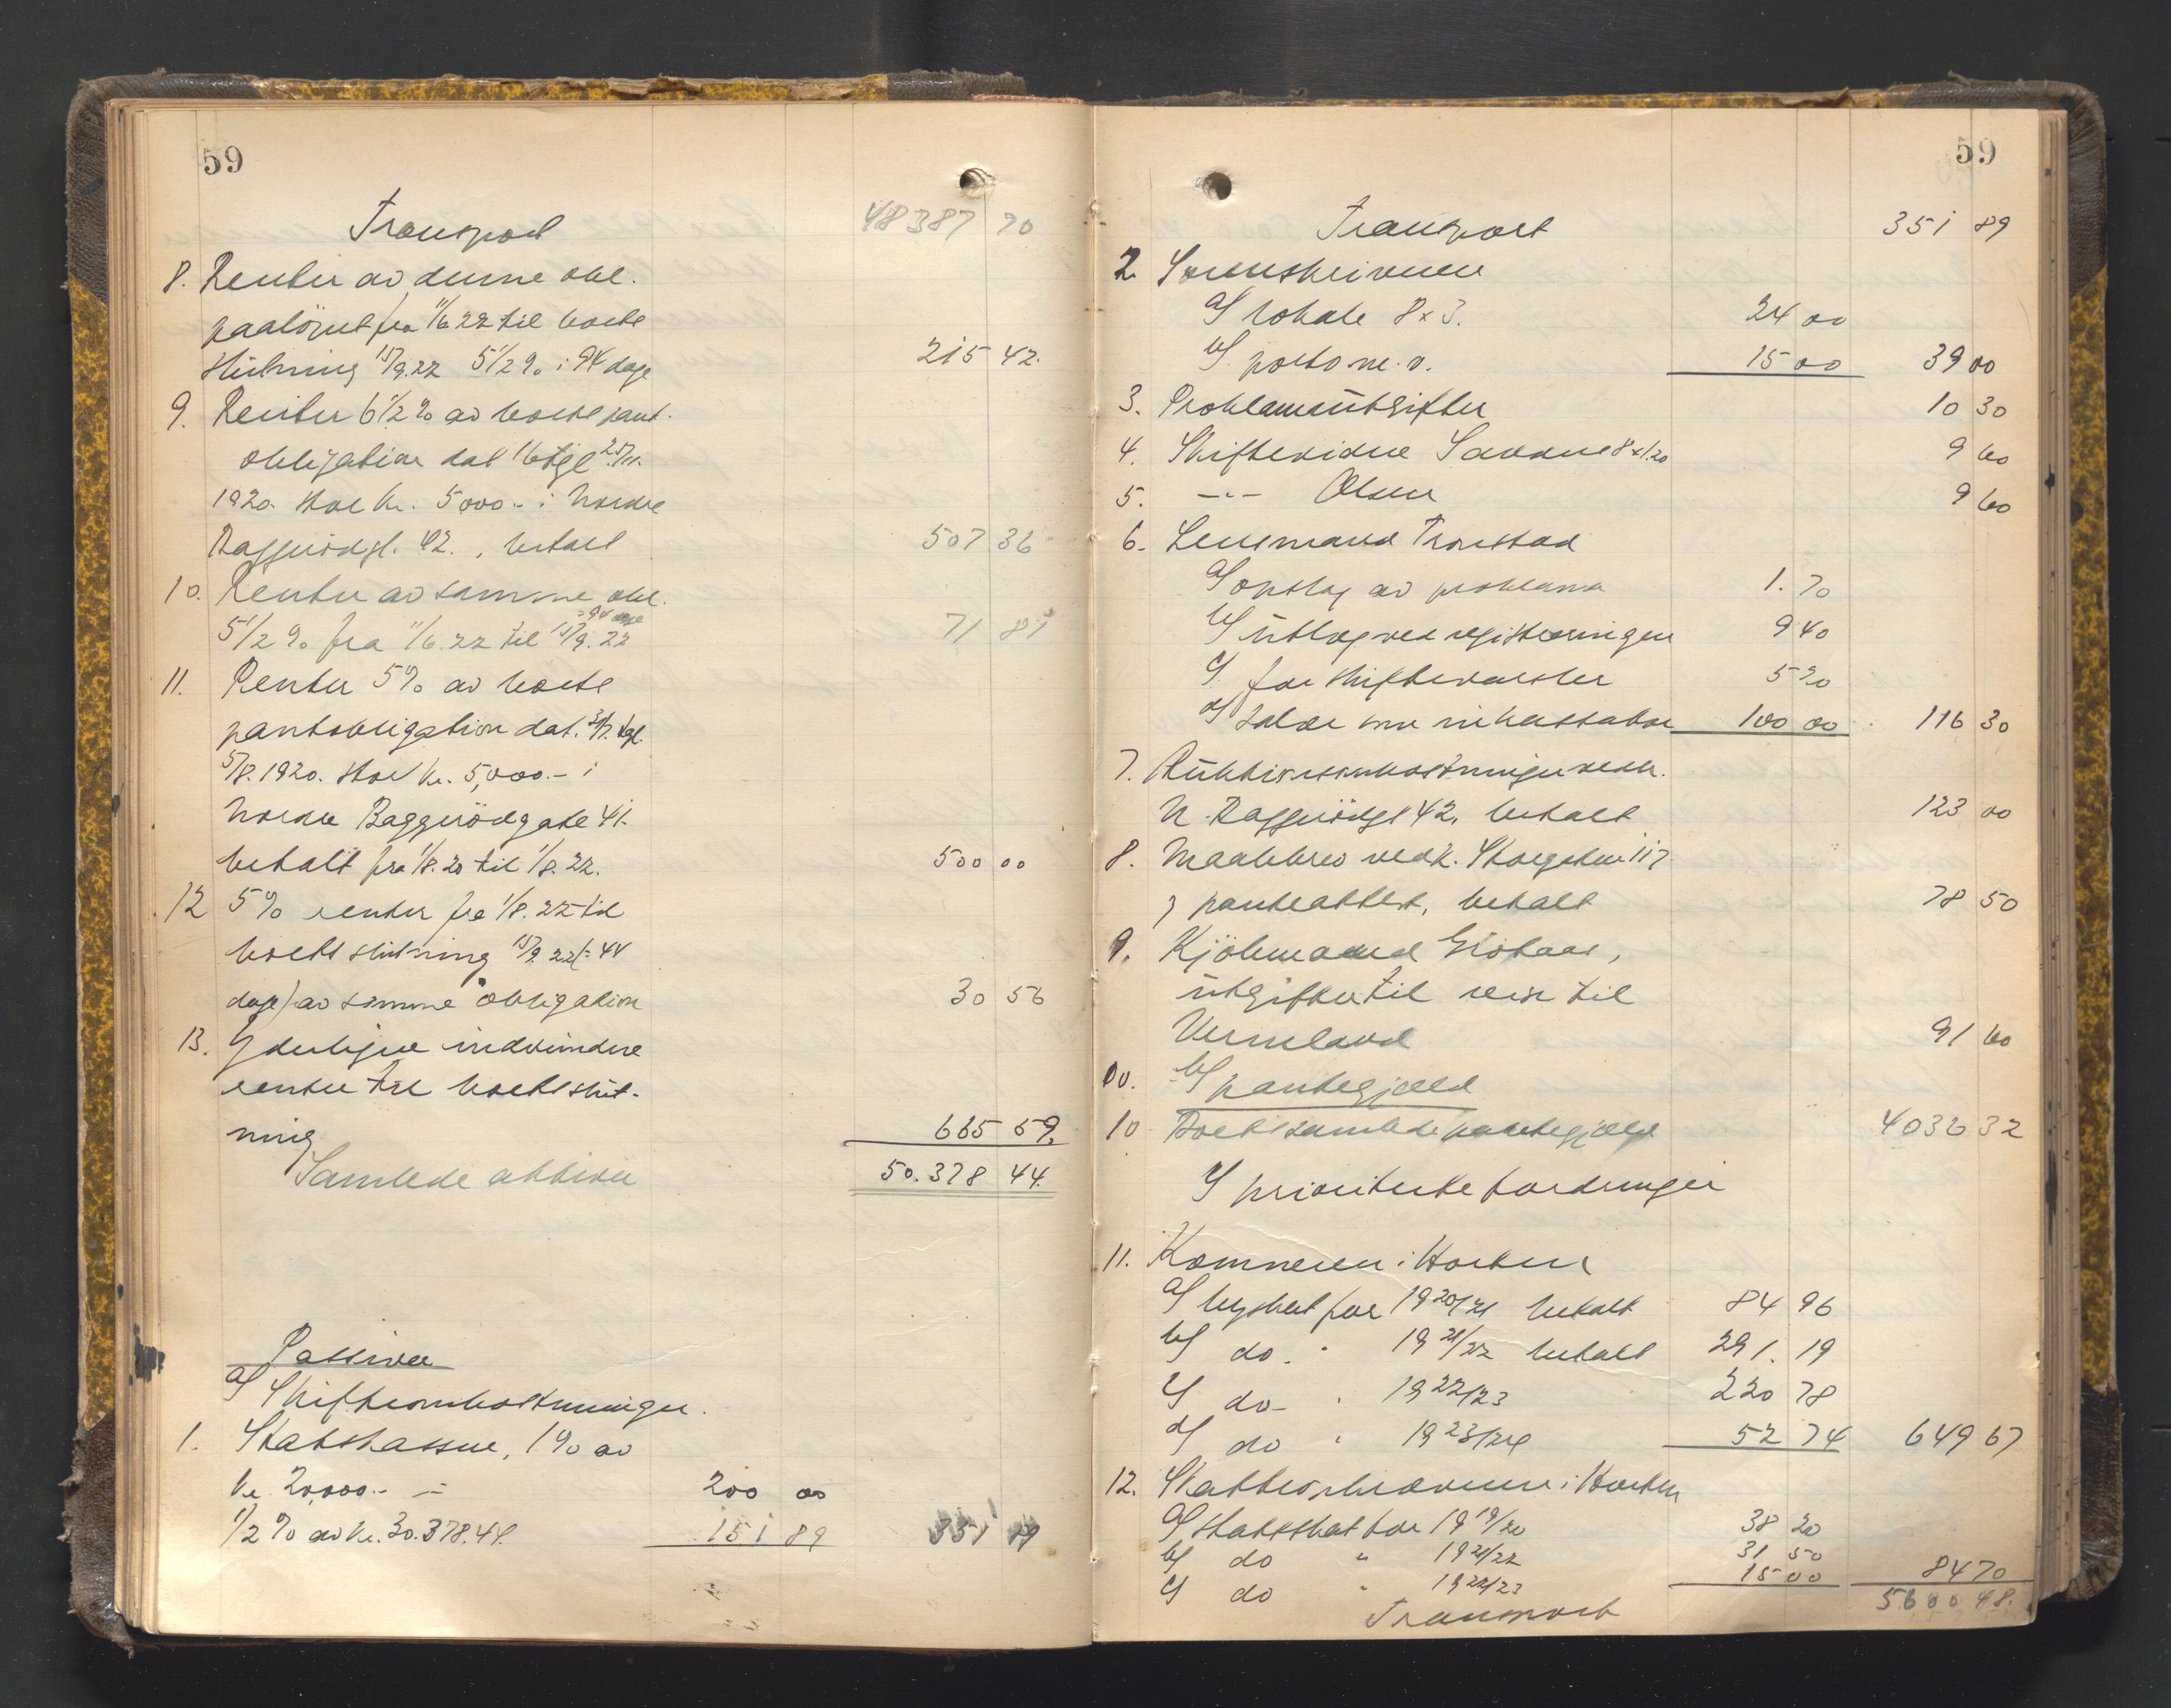 59
Transport 48387 70
8. Renter av denne obl.
paalöpet fra 11/6 22 til boets
slutning 15/9.22 5 1/2 % i 94 dage 215 42.
9. Renter 6 1/2 % av boets pant-
obligation dat 1/6 tgl 25/11.
1920. stor kr. 5000.- i Nordre
Baggerödgt. 42., betalt 507 36
10. Renter av samme obl.
= 94 dage
5 1/2 % fra 11/6.22 til 15/9.22 71 81
11. Renter 5% av boets
pantobligation dat. 31/7. tgl.
5/8.1920. stor kr. 5,000.- i
Nordre Baggerödgate 41.
betalt fra 1/8.20 til 1/8.22. 500 00
12 5% renter fra 1/8.22 til
boets slutning 15/9 22 (= 44
dage) av samme obligation 30 56
13. Yderligere indvundne
renter til boets slut-
ning 665 59.
Samlede aktiva 50.378 44.
Passiva
a) Skifteomkostninger.
1. Statskassen, 1% av
kr. 20,000.- = 200 00
1/2 % av kr. 30.378.44. 151 89 351 89
59
Transport 351 89
2. Sorenskriveren
a) lokale 8 x 3. 24 00
b) porto m.v. 15 00 39 00
3. Proklamautgifter 10 30
4. Skiftevidne 8 x 1.20 9 60
5. -"- Olsen 9 60
6. Lensmand Tronstad
a) opslag av proklama 1.70
b) utlæg ved registreringen 9 40
c) for skiftevarsler 5 20
d) Salær som inkassator 100 00 116 30
7. Auktionsomkostninger vedk.
N. Baggerödgt 42, betalt 123 00
8. Maalebrev vedk. Storgaten 117
& panteattest, betalt 78 50
9. Kjöbmand
utgifter til reise til
Vermland 91 60
b) pantegjæld
10 Boets samlede pantegjæld 4036 32
c) prioriterte fordringer
11. Kæmneren i Horten
a) byskat for 1920/21 betalt 84 96
b) do. " 1921/22 betalt 291.19
c) do " 1922/23 220 78
d) do " 1923/24 52 74 649 67
12. Skatteopkræveren i Horten
a) statsskat for 1919/20 38 20
b) do " 1921/22 31 50
c) do " 1922/23 15 00 84 70
Transport 5600 48.